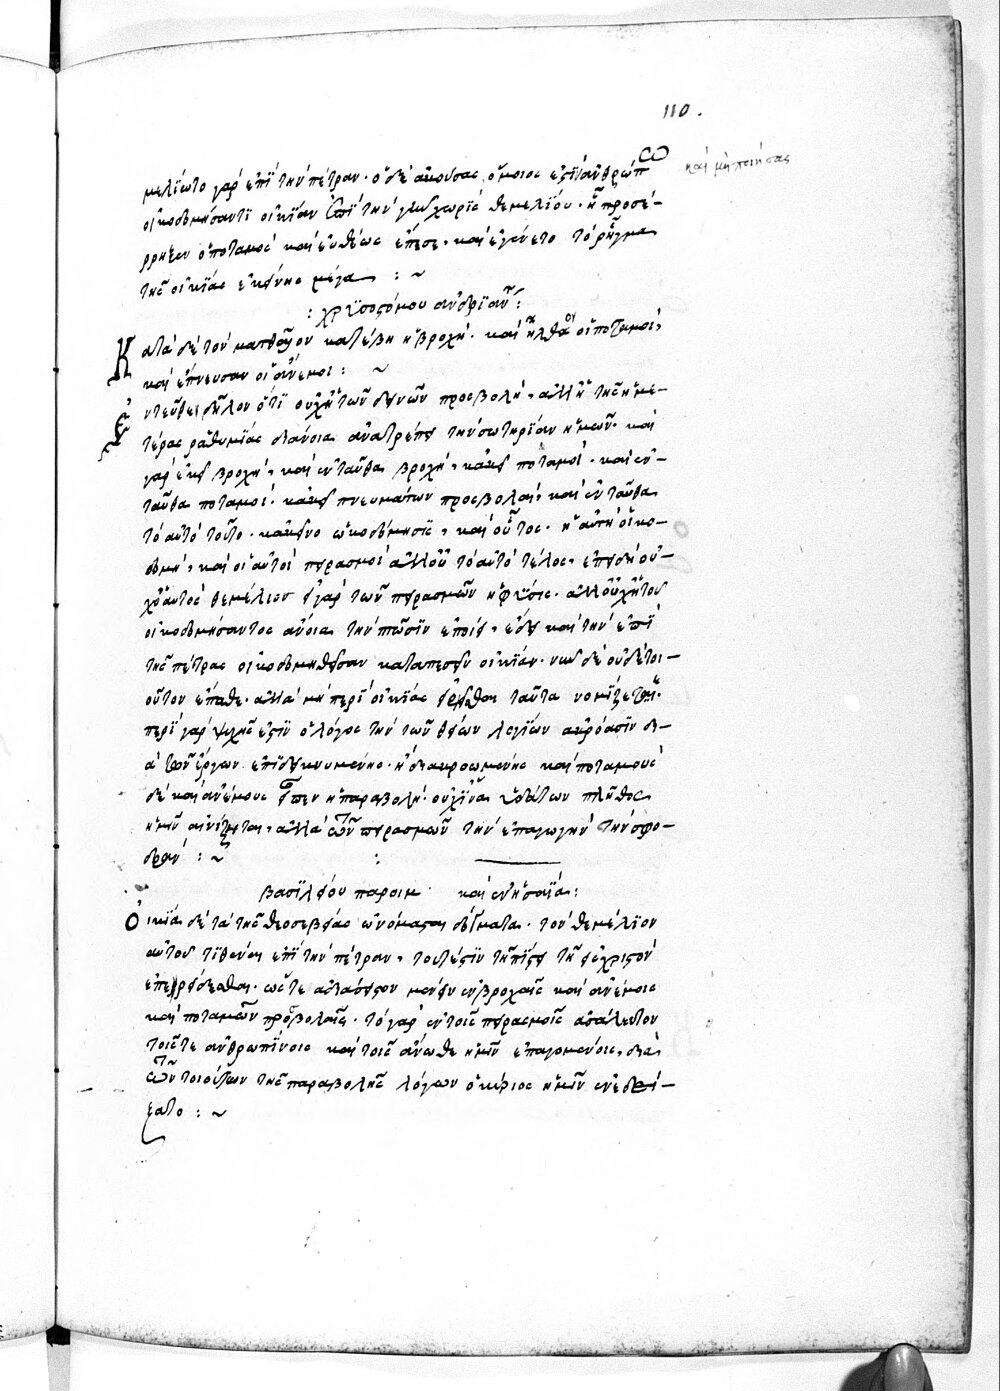 110.
μελίωτο γὰρ ἐπὶ τὴν πέτραν· ὁ δὲ ἀκούσας ὅμοιός ἐστιν ἀνθρώπω
καὶ μὴ ποιήσας
οἰκοδομήσαντι οἰκίαν ἐπὶ τὴν γῆν χωρὶς θεμελίου· ἧ προσέ-
ρρηξεν ὁ ποταμὸς καὶ εὐθέως ἔπεσε· καὶ ἐγένετο τὸ ῥῆγμα
τῆς οἰκίας ἐκείνης μέγα : ~
: χρυσοστόμου ἀνδριαν :
Κατὰ δὲ τὸν ματθαῖον κατέβη ἡ βροχὴ· καὶ ἦλθον οἱ ποταμοὶ,
καὶ ἔπνευσαν οἱ ἄνεμοι : ~
Ἐντεῦθεν δῆλον ὅτι οὐχ ἡ τῶν δεινῶν προσβολὴ, ἀλλ' ἡ τῆς ἡμε-
τέρας ῥαθυμίας διάνοια ἀνατρέπει τὴν σωτηρίαν ἡμῶν· καὶ
γὰρ ἐκεῖ βροχὴ, καὶ ἐνταῦθα βροχὴ, κἀκεῖ ποταμοὶ· καὶ ἐν-
ταῦθα ποταμοὶ· κἀκεῖ πνευμάτων προσβολαὶ, καὶ ἐνταῦθα
τὸ αὐτὸ τοῦτο· κἀκεῖνο ὠκοδόμησε, καὶ οὗτος· ἡ αὐτὴ οἰκο-
δομὴ, καὶ οἱ αὐτοὶ πειρασμοὶ ἀλλ' οὐ τὸ αὐτὸ τέλος, ἐπειδὴ οὐ-
χ ὁ αὐτὸς θεμέλιος εἰ γὰρ τῶν πειρασμῶν ἡ φύσις· ἀλλ' οὐχ ἡ τοῦ
οἰκοδομήσαντος ἄνοια τὴν πτῶσιν ἐποίει, ἔδει καὶ τὴν ἐπὶ
τῆς πέτρας οἰκοδομηθεῖσαν καταπεσεῖν οἰκίαν· νῦν δὲ οὐδὲ τοι-
οῦτον ἔπαθε· ἀλλὰ μὴ περὶ οἰκίας εἰρῆσθαι ταῦτα νομίζετε·
περὶ γὰρ ψυχῆς ἐστιν ὁ λόγος τὴν τῶν θείων λογίων ἀκρόασιν δι-
ὰ τῶν ἔργων ἐπιδεικνυμένης· ἢ διακρουομένης καὶ ποταμοὺς
δὲ καὶ ἀνέμους εἶπεν ἡ παραβολὴ· οὐχ ἵνα ὑδάτων πλῆθος
ἡμῖν αἰνίξηται, ἀλλὰ τῶν πειρασμῶν τὴν ἐπαγωγὴν τὴν σφο-
δρὰν : ~
βασιλείου παροιμ καὶ ἐν ἠσαΐα :
Οἰκίαν δὲ τὰ τῆς θεοσεβείας ὠνόμασεν δόγματα· τὸν θεμέλιον
αὐτοῦ τιθέναι ἐπὶ τὴν πέτραν, τουτέστιν τῆ πίστει τῆ εἰς χριστὸν
ἐπερείδεσθαι· ὥστε ἀδιάσειστον μένειν ἐν βροχαῖς καὶ ἀνέμοις
καὶ ποταμῶν προσβολαῖς· τὸ γὰρ ἐν τοῖς πειρασμοῖς ἀσάλευτον
τοῖς τε ἀνθρωπίνοις καὶ τοῖς ἄνωθεν ἡμῖν ἐπαγομένοις, διὰ
τῶν τοιούτων τῆς παραβολῆς λόγων ὁ κύριος ἡμῖν ἐνεδεί-
ξατο : ~